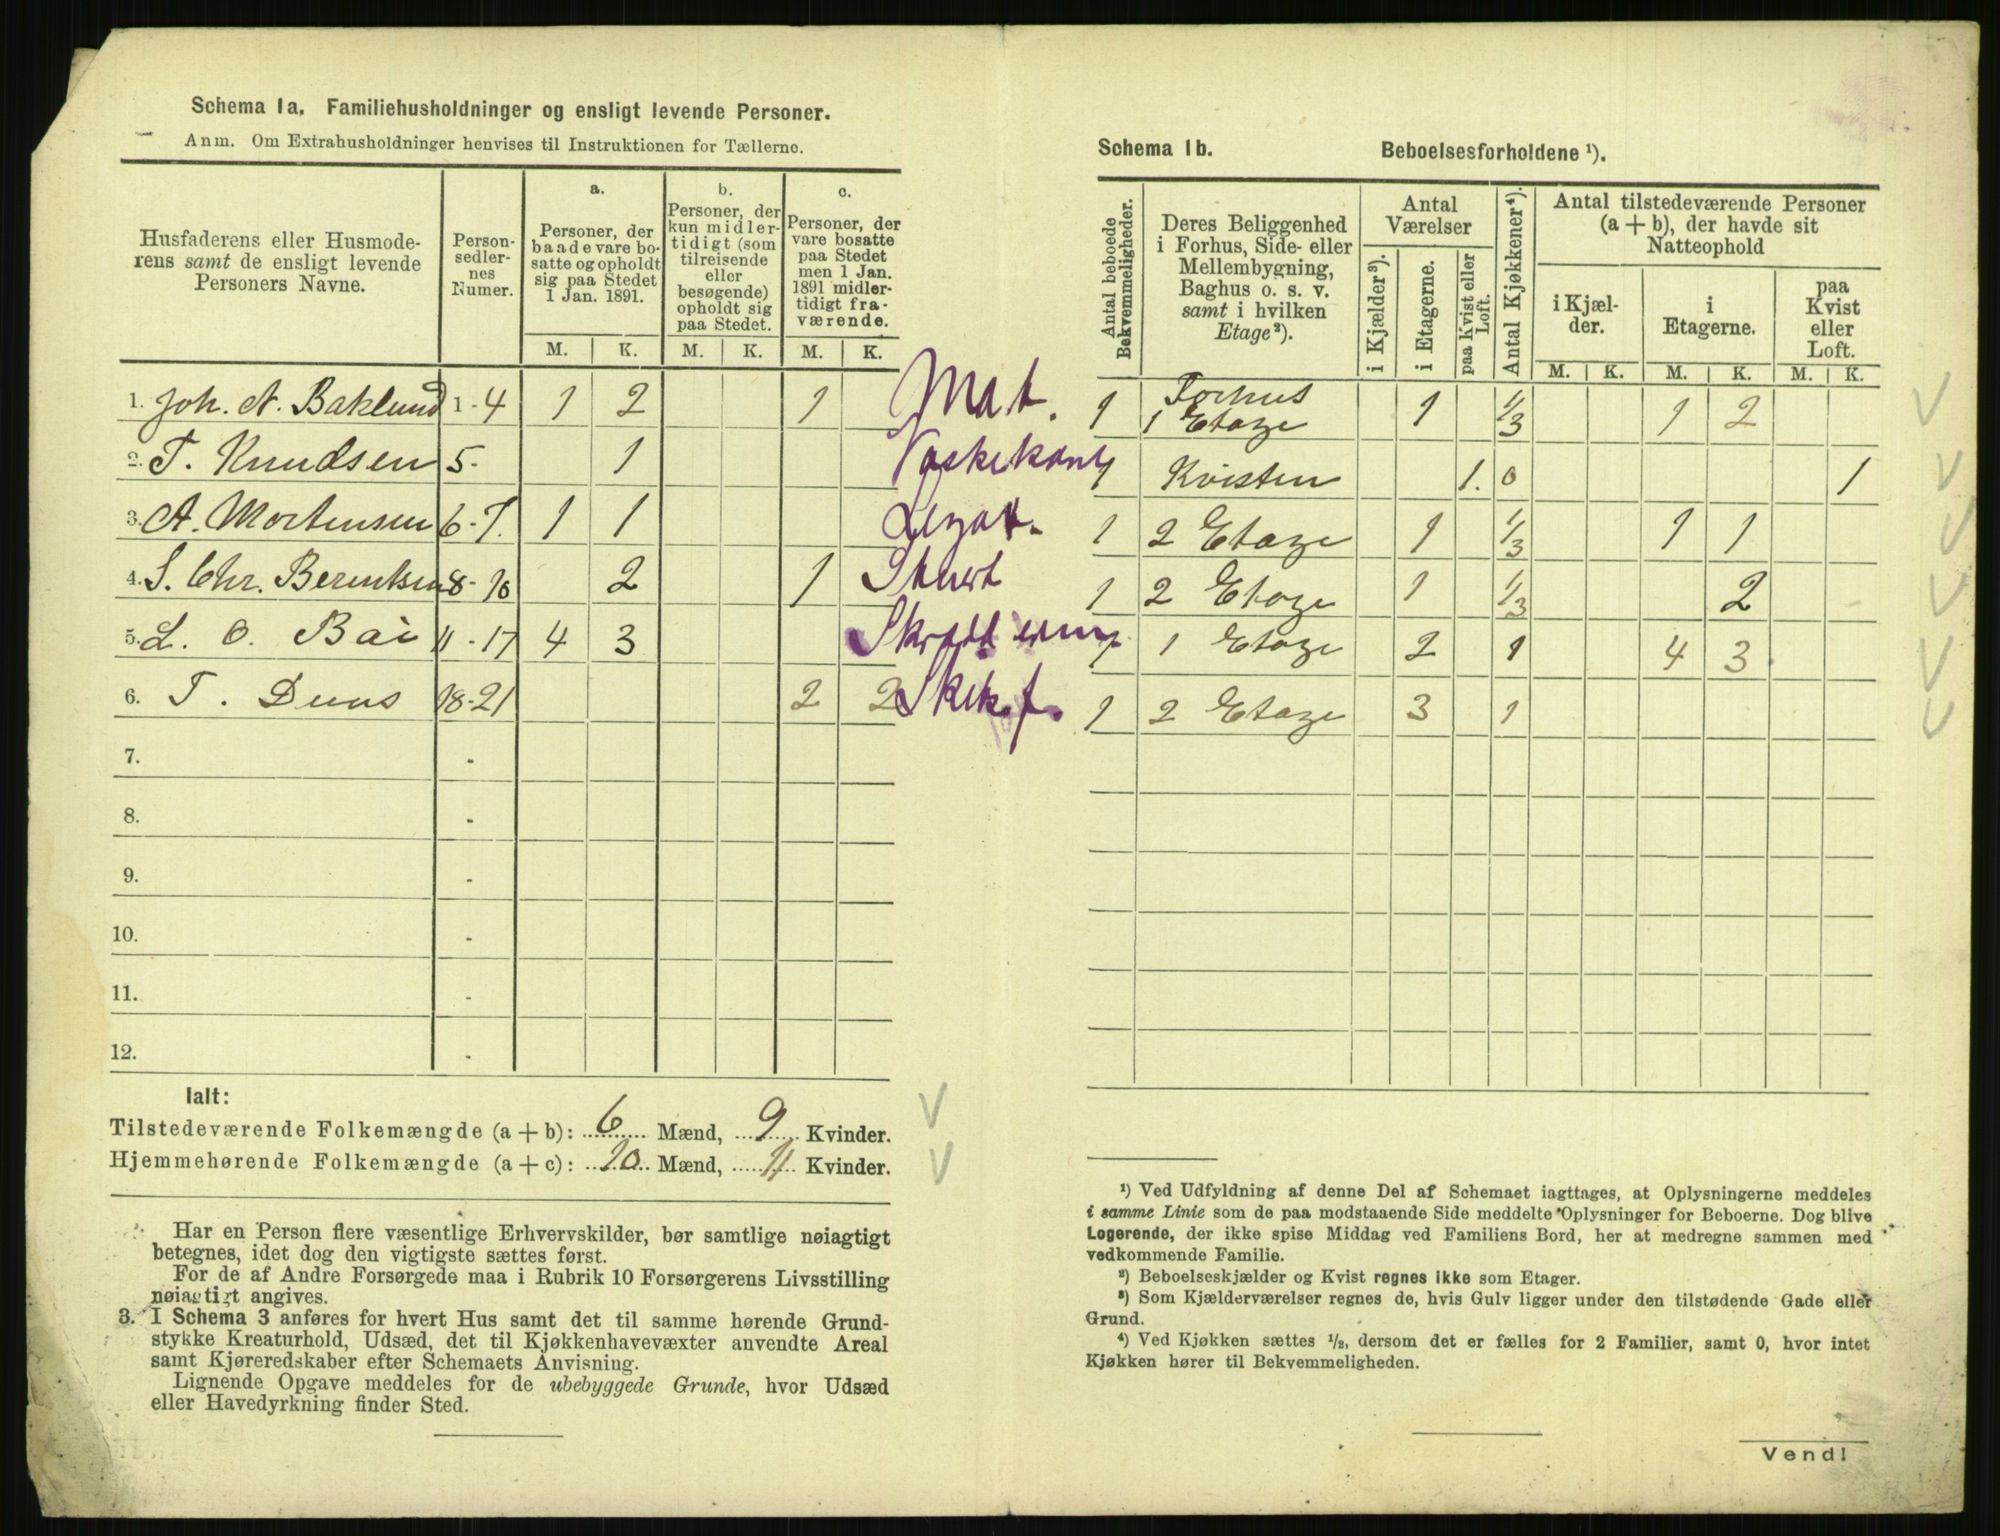 Schema 1a. Familiehusholdninger og ensligt levende Personer.
Anm. Om Extrahusholdninger henvises til Instruktionen for Tællerne.
Husfaderens eller Husmode-
rens samt de ensligt levende
Personers Navne.
Person-
sedler-
nes
Numer.
a.
Personer, der
baade vare bo-
satte og opholdt
sig paa Stedet
1 Jan. 1891.
b.
Personer, der
kun midler-
tidigt (som
tilreisende
eller
besøgende)
opholdt sig
paa Stedet.
c.
Personer, der
vare bosatte
paa Stedet
men 1 Jan.
1891 midler-
tidigt fra-
værende.
M. K. M. K. M. K.
1. Joh. A. Baklund 1-4 1 2 1 Mat.
2. T. Knudsen 5. 1 Vaskekone
3. A. Mortensen 6-7. 1 1
4. S. Chr. Berentsen 8-10 2 1
5. L. O. Bai 11-17 4 3
6. T. Duus 18-21 2 2
7. -
8. -
9. -
10. -
11. -
12. -
Ialt:
Tilstedeværende Folkemængde (a + b): 6 Mænd, 9 Kvinder.
Hjemmehørende Folkemængde (a + c): 10 Mænd, 11 Kvinder.
Har en Person flere væsentlige Erhvervskilder, bør samtlige nøiagtigt
betegnes, idet dog den vigtigste sættes først.
For de af Andre Forsørgede maa i Rubrik 10 Forsørgerens Livsstilling
nøiagtigt angives.
3. I Schema 3 anføres for hvert Hus samt det til samme hørende Grund-
stykke Kreaturhold, Udsæd, det til Kjøkkenhavevæxter anvendte Areal
samt Kjøreredskaber efter Schemaets Anvisning.
Lignende Opgave meddeles for de ubebyggede Grunde, hvor Udsæd
eller Havedyrkning finder Sted.
Schema 1b. Beboelsesforholdene ¹).
Antal beboede
Bekvemmeligheder.
Deres Beliggenhed
i Forhus, Side- eller
Mellembygning,
Baghus o. s. v.
samt i hvilken
Etage²).
Antal
Værelser
i Kjælder³).
i Etagerne.
paa Kvist eller
Loft.
Antal Kjøkkener⁴).
Antal tilstedeværende Personer
(a + b), der havde sit
Natteophold
i Kjæl-
der.
i
Etagerne.
paa
Kvist
eller
Loft.
M. K. M. K. M. K.
1 Forhus
1 Etage 1 1/3 1 2
1 Kvisten 1. 0 1
1 2 Etage 1 1/3 1 1
1 2 Etage 1 1/3 2
1 1 Etage 2 1 4 3
1 2 Etage 3 1
¹) Ved Udfyldning af denne Del af Schemaet iagttages, at Oplysningerne meddeles
i samme Linie som de paa modstaaende Side meddelte Oplysninger for Beboerne. Dog blive
Logerende, der ikke spise Middag ved Familiens Bord, her at medregne sammen med
vedkommende Familie.
²) Beboelseskjælder og Kvist regnes ikke som Etager.
³) Som Kjælderværelser regnes de, hvis Gulv ligger under den tilstødende Gade eller
Grund.
⁴) Ved Kjøkken sættes ½, dersom det er fælles for 2 Familier, samt 0, hvor intet
Kjøkken hører til Bekvemmeligheden.
Vend!